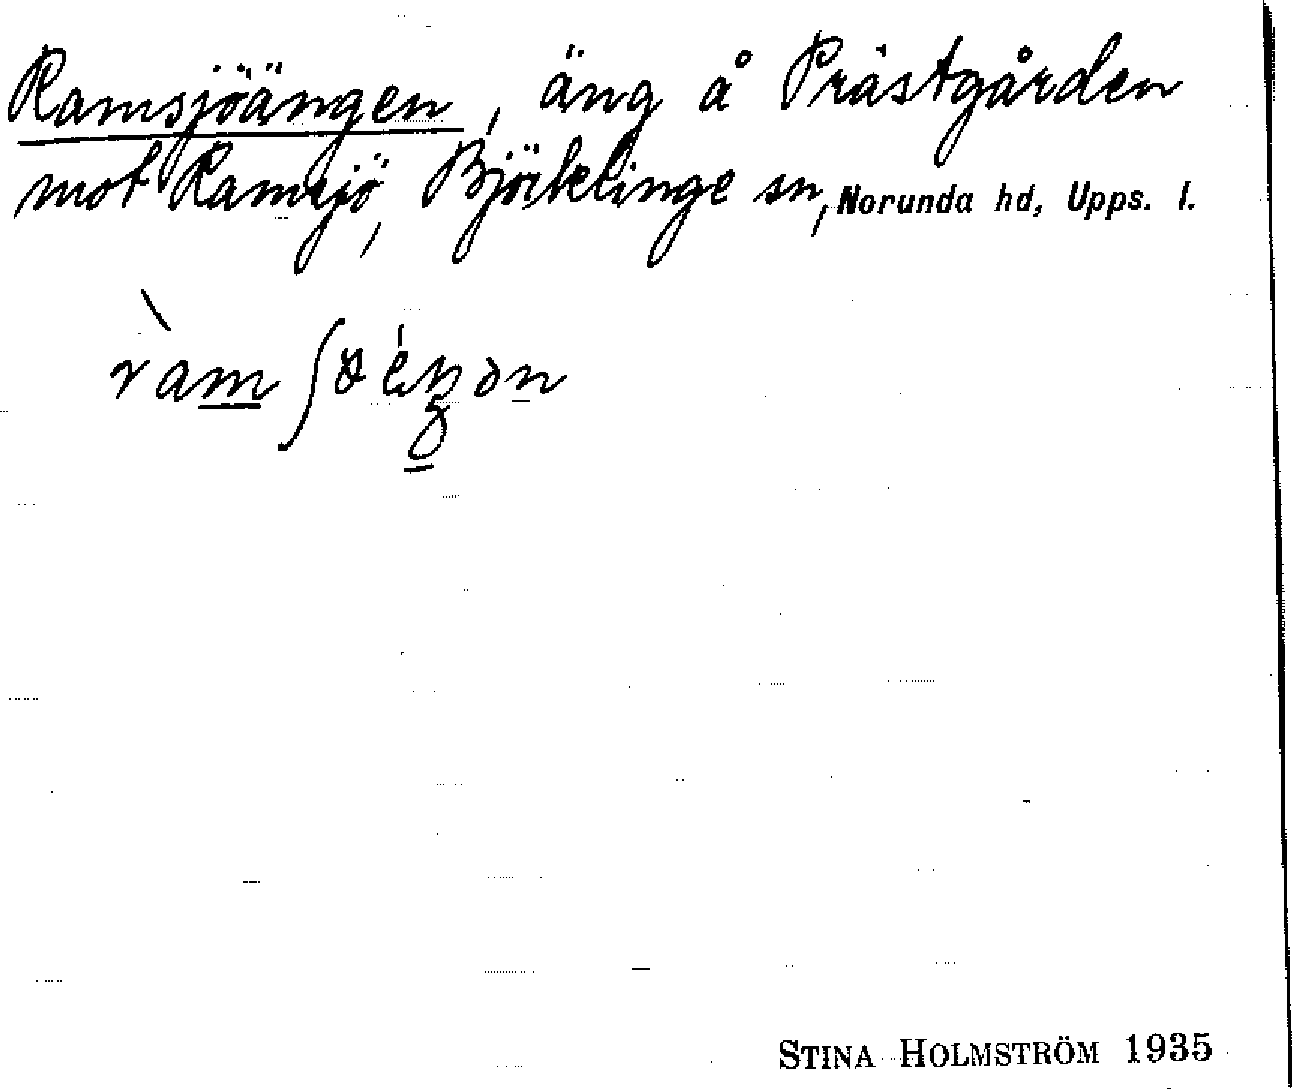 Ramsjöängen, äng å Prästgården
mot Ramsjö, Björklinge sn, Norunda hd, Upps. l.
STINA HOLMSTRÖM 1935